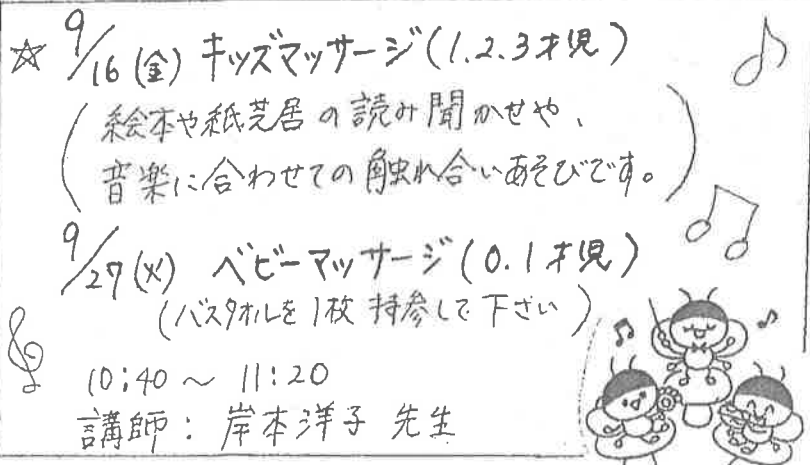 ☆ 9/16(金) キッズマッサージ(1.2.3才児)
(絵本や紙芝居の読み聞かせや、
音楽に合わせての触れ合いあそびです。)
9/27(火) ベビーマッサージ(0.1才児)
(バスタオルを1枚 持参して下さい)
10:40～11:20
講師:岸本洋子 先生